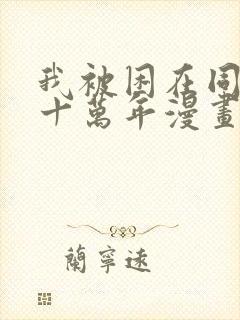 我被困在同
十萬年漫畫
蘭寧遠